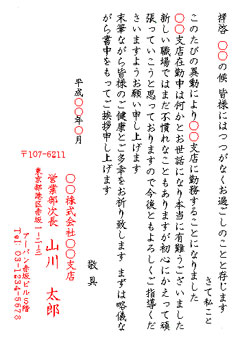 拝啓 〇〇の候 皆様にはつつがなくお過ごしのことと存じます
さて私こと
このたびの異動により〇〇支店に勤務することになりました
〇〇支店在勤中は何かとお世話になり本当に有難うございました
新しい職場ではまだ不慣れなこともありますが初心にかえって頑
張っていこうと思っておりますので今後ともよろしくご指導くだ
さいますようお願い申し上げます
末筆ながら皆様のご健康とご多幸をお祈り致します まずは略儀な
がら書中をもってご挨拶申し上げます
敬具
平成〇〇年〇月
〇〇株式会社〇〇支店
営業部次長 山川 太郎
〒107-6211
東京都港区赤坂一-二-三
アーバン赤坂ビル80階
Tel: 03-1234-5678